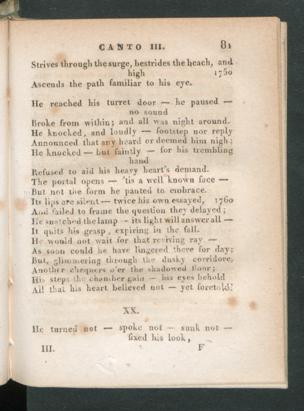 CANTO III. 81
Strives through the surge, bestrides the beach, and
high 1750
Ascends the path familiar to his eye.
He reached his turret door — he paused —
no sound
Broke from within; and all was night around.
He knocked, and loudly — footstep nor reply
Announced that any heard or deemed him nigh;
He knocked — but faintly — for his trembling
hand
Refused to aid his heavy heart's demand.
The portal opens — 'tis a well known face —
But not the form he panted to embrace.
Its lips are silent — twice his own essayed, 1760
And failed to frame the question they delayed;
He snatched the lamp — its light will answer all —
It quits his grasp, expiring in the fall.
He would not wait for that reviving ray —
As soon could he have lingered there for day;
But, glimmering through the dusky corridore,
Another chequers o'er the shadowed floor;
His steps the chamber gain — his eyes behold
All that his heart believed not — yet foretold!
XX.
He turned not — spoke not — sunk not —
fixed his look,
III. F